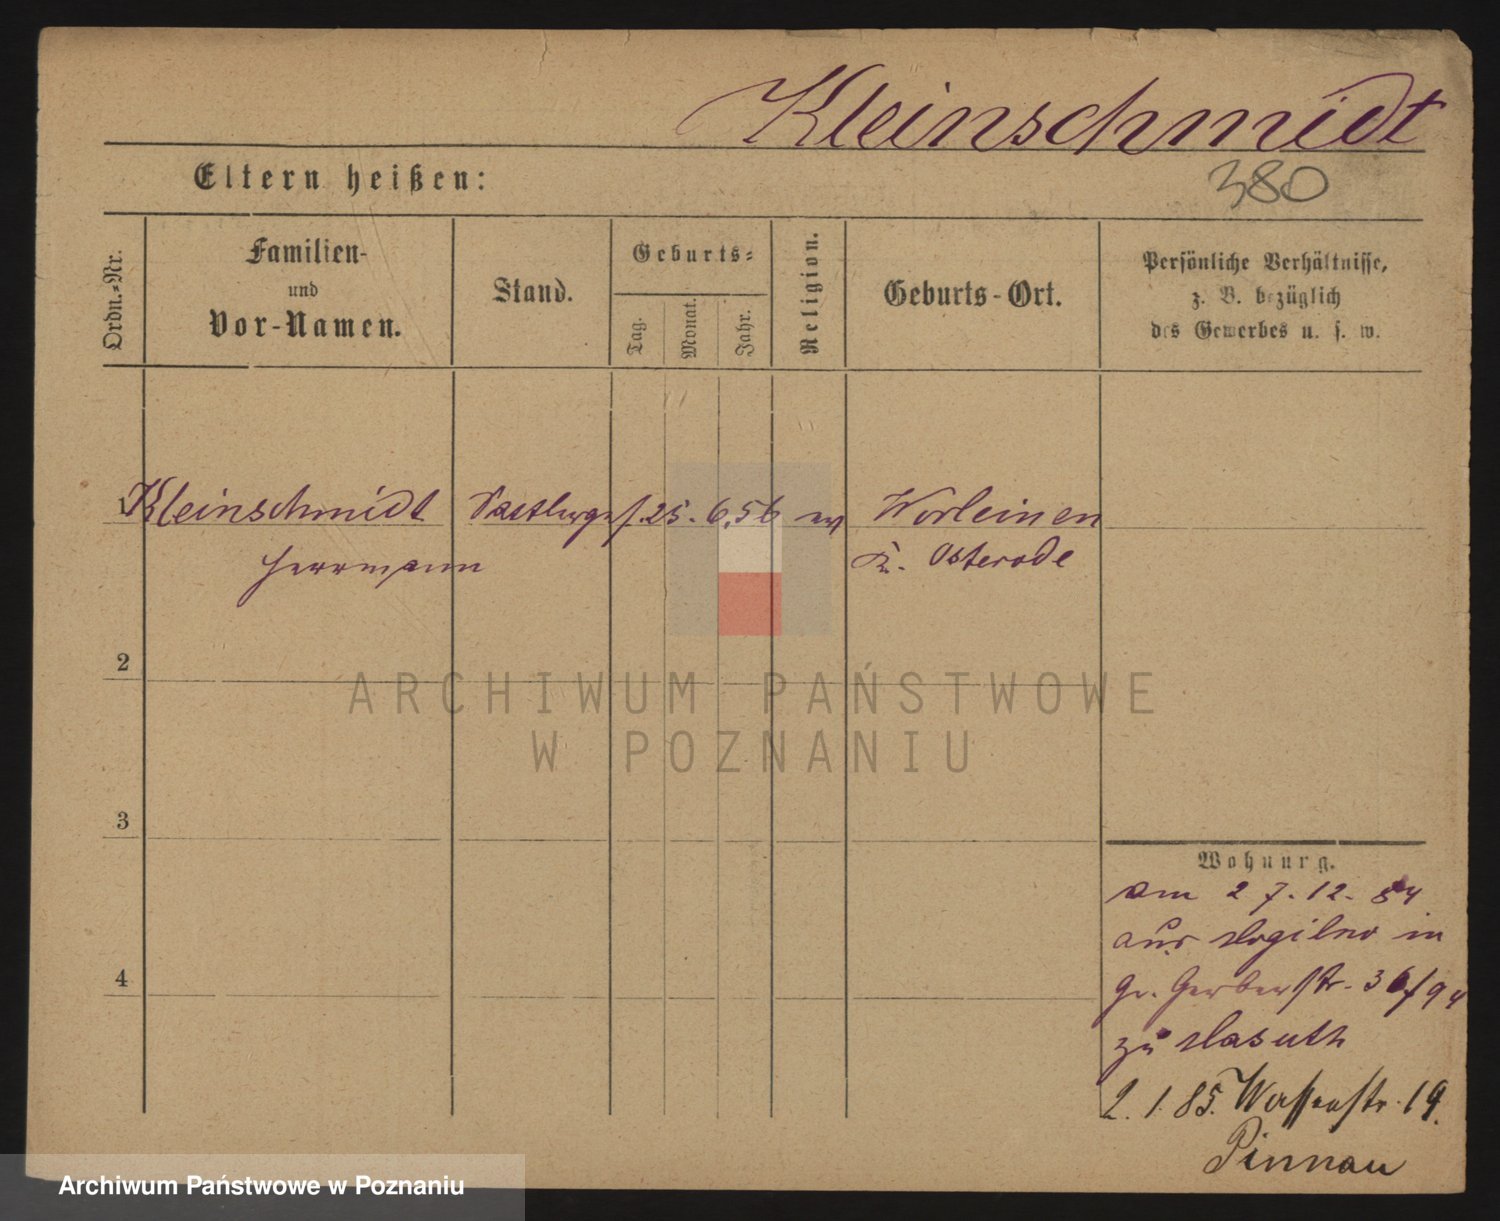 Kleinschmidt
380
Eltern heißen:
Ordn.-Nr.
Familien-
und
Vor-Namen.
Stand.
Geburts-
Tag.
Monat.
Jahr.
Religion.
Geburts-Ort.
Persönliche Verhältnisse,
z. B. bezüglich
des Gewerbes u. s. w.
1 Kleinschmidt 25. 6. 56 ev Worleinen
Herrmann Kr. Osterode
2
3
4
Wohnung.
am 27. 12. 84
aus Mogilno in
Gr. Gerberstr. 36/
zu Masuth
2. 1. 85. Wasserstr. 19.
Pinnau
ARCHIWUM PAŃSTWOWE
W POZNANIU
Archiwum Państwowe w Poznaniu